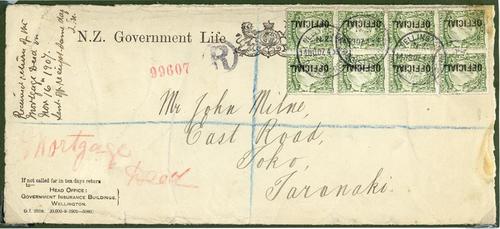 Received return of the
Mortgage Deed on
Nov 16th 1907.
Sent off receipt same day
N.Z. Government Life
R
99607
OFFICIAL OFFICIAL OFFICIAL OFFICIAL
OFFICIAL OFFICIAL OFFICIAL OFFICIAL
Mr John Milne,
East Road,
Toko,
Taranaki.
Mortgage
Deed
If not called for in ten days return
to—
HEAD OFFICE:
GOVERNMENT INSURANCE BUILDINGS,
WELLINGTON.